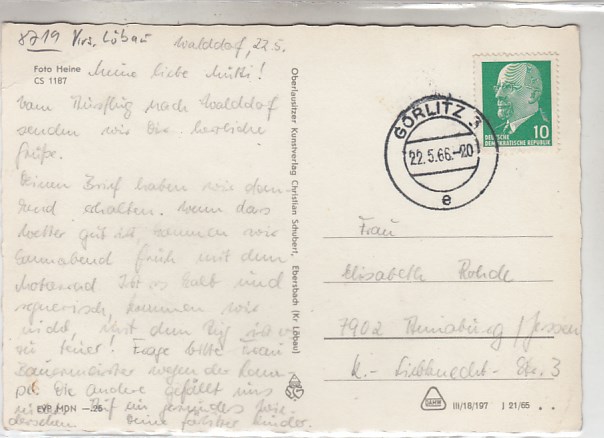 8719 Krs. Löbau
Walddorf, 22.5.
Foto Heine
CS 1187
Meine liebe Mutti!
Vom Ausflug nach Walddorf
senden wir Dir herzliche
Grüße.
Deinen Brief haben wir dan-
kend erhalten. Wenn das
Wetter gut ist, kommen wir
Sonnabend früh mit dem
Motorrad. Ist es kalt und
regnerisch, kommen wir
nicht, mit dem Zug ist es
zu teuer! Frage bitte Frau
wegen der Lam-
pe. Die andere gefällt uns
nicht. Auf ein gesundes Wie-
dersehen Deine Kinder.
EVP MDN —.25
Oberlausitzer Kunstverlag Christian Schubert, Ebersbach (Kr. Löbau)
GÖRLITZ 3
22.5.66.-20
e
10
DEUTSCHE
DEMOKRATISCHE REPUBLIK
Frau
Elisabeth Rohde
7902 Annaburg / Jessen
K.-Liebknecht-Str. 3
III/18/197 J 21/65